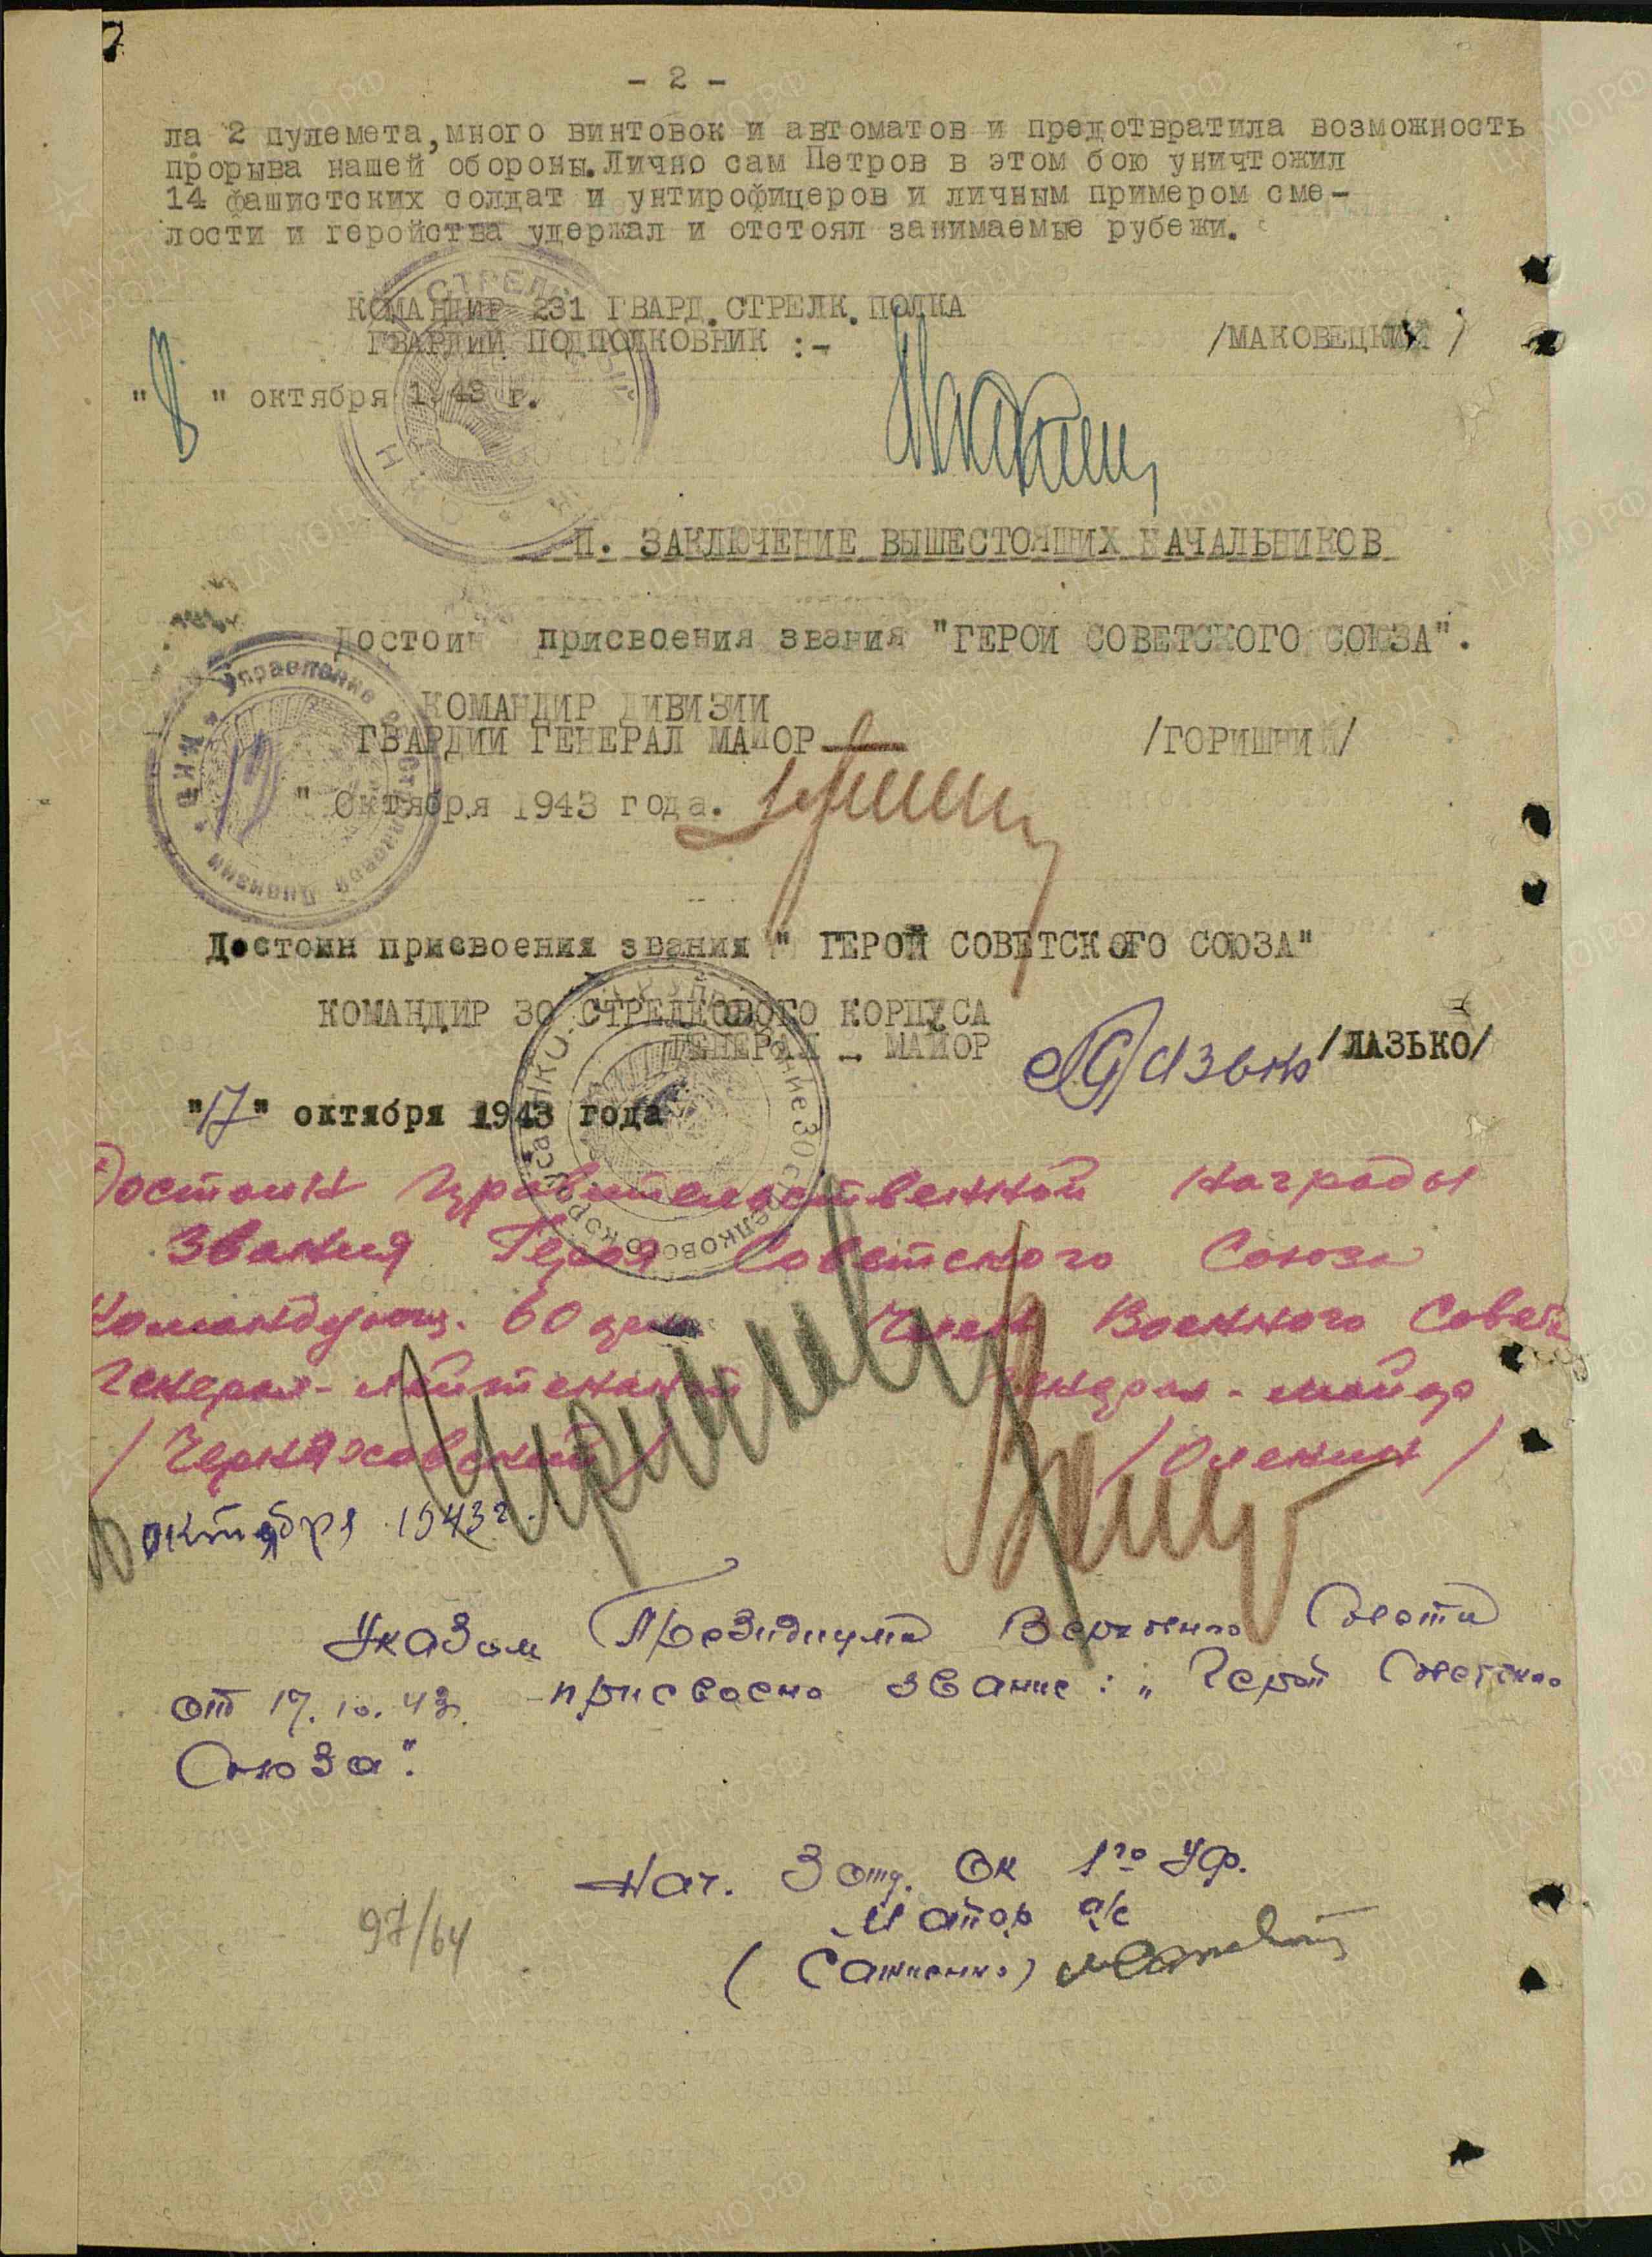 - 2 -
ла 2 пулемета, много винтовок и автоматов и предотвратила возможность
прорыва нашей обороны. Лично сам Петров в этом бою уничтожил
14 фашистских солдат и унтирофицеров и личным примером сме-
лости и геройства удержал и отстоял занимаемые рубежи.
КОМАНДИР 231 ГВАРД. СТРЕЛК. ПОЛКА
ГВАРДИИ ПОДПОЛКОВНИК :- /МАКОВЕЦКИЙ/
" " октября 1943 г.
П. ЗАКЛЮЧЕНИЕ ВЫШЕСТОЯЩИХ НАЧАЛЬНИКОВ
Достоин присвоения звания "ГЕРОЙ СОВЕТСКОГО СОЮЗА".
КОМАНДИР ДИВИЗИИ
ГВАРДИИ ГЕНЕРАЛ МАЙОР /ГОРИШНИЙ/
" октября 1943 года.
Достоин присвоения звания " ГЕРОЙ СОВЕТСКОГО СОЮЗА"
КОМАНДИР 30 СТРЕЛКОВОГО КОРПУСА
ГЕНЕРАЛ - МАЙОР /ЛАЗЬКО/
"17" октября 1943 года
Достоин Правительственной награды
Звания Героя Советского Союза
Командующ. 60 арм. Член Военного Совета
Генерал-лейтенант генерал-майор
/Черняховский/ /Оленин/
октября 1943 г.
Указом Президиума Верховного Совета
от 17.10.43 присвоено звание: "Герой Советского
Союза".
Нач. 3 отд. ОК 1го УФ.
Майор а/с
97/64